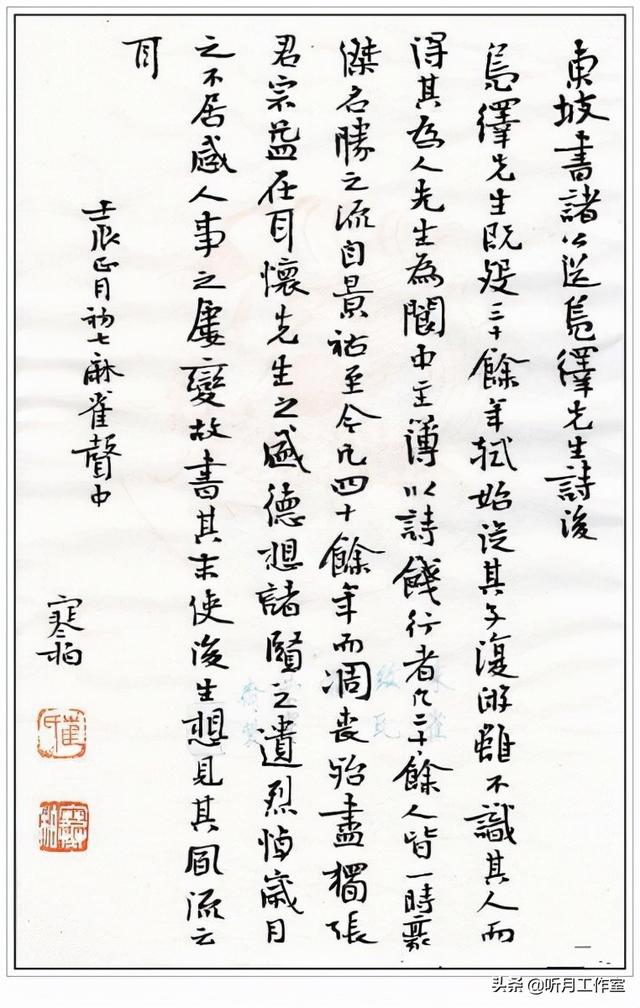 東坡書諸公送鳧繹先生詩後
鳧繹先生既歿三十餘年軾始從其子復游雖不識其人而
得其為人先生為閬中主簿以詩餞行者凡二十餘人皆一時豪
傑名勝之流自景祐至今凡四十餘年而凋喪殆盡獨張
君宗益在耳懷先生之盛德想諸賢之遺烈悼歲月
之不居感人事之屢變故書其末使後生想見其風流云
耳
壬辰正月初七麻雀聲中
寒柏
崔氏
寒柏
头条 @听月工作室